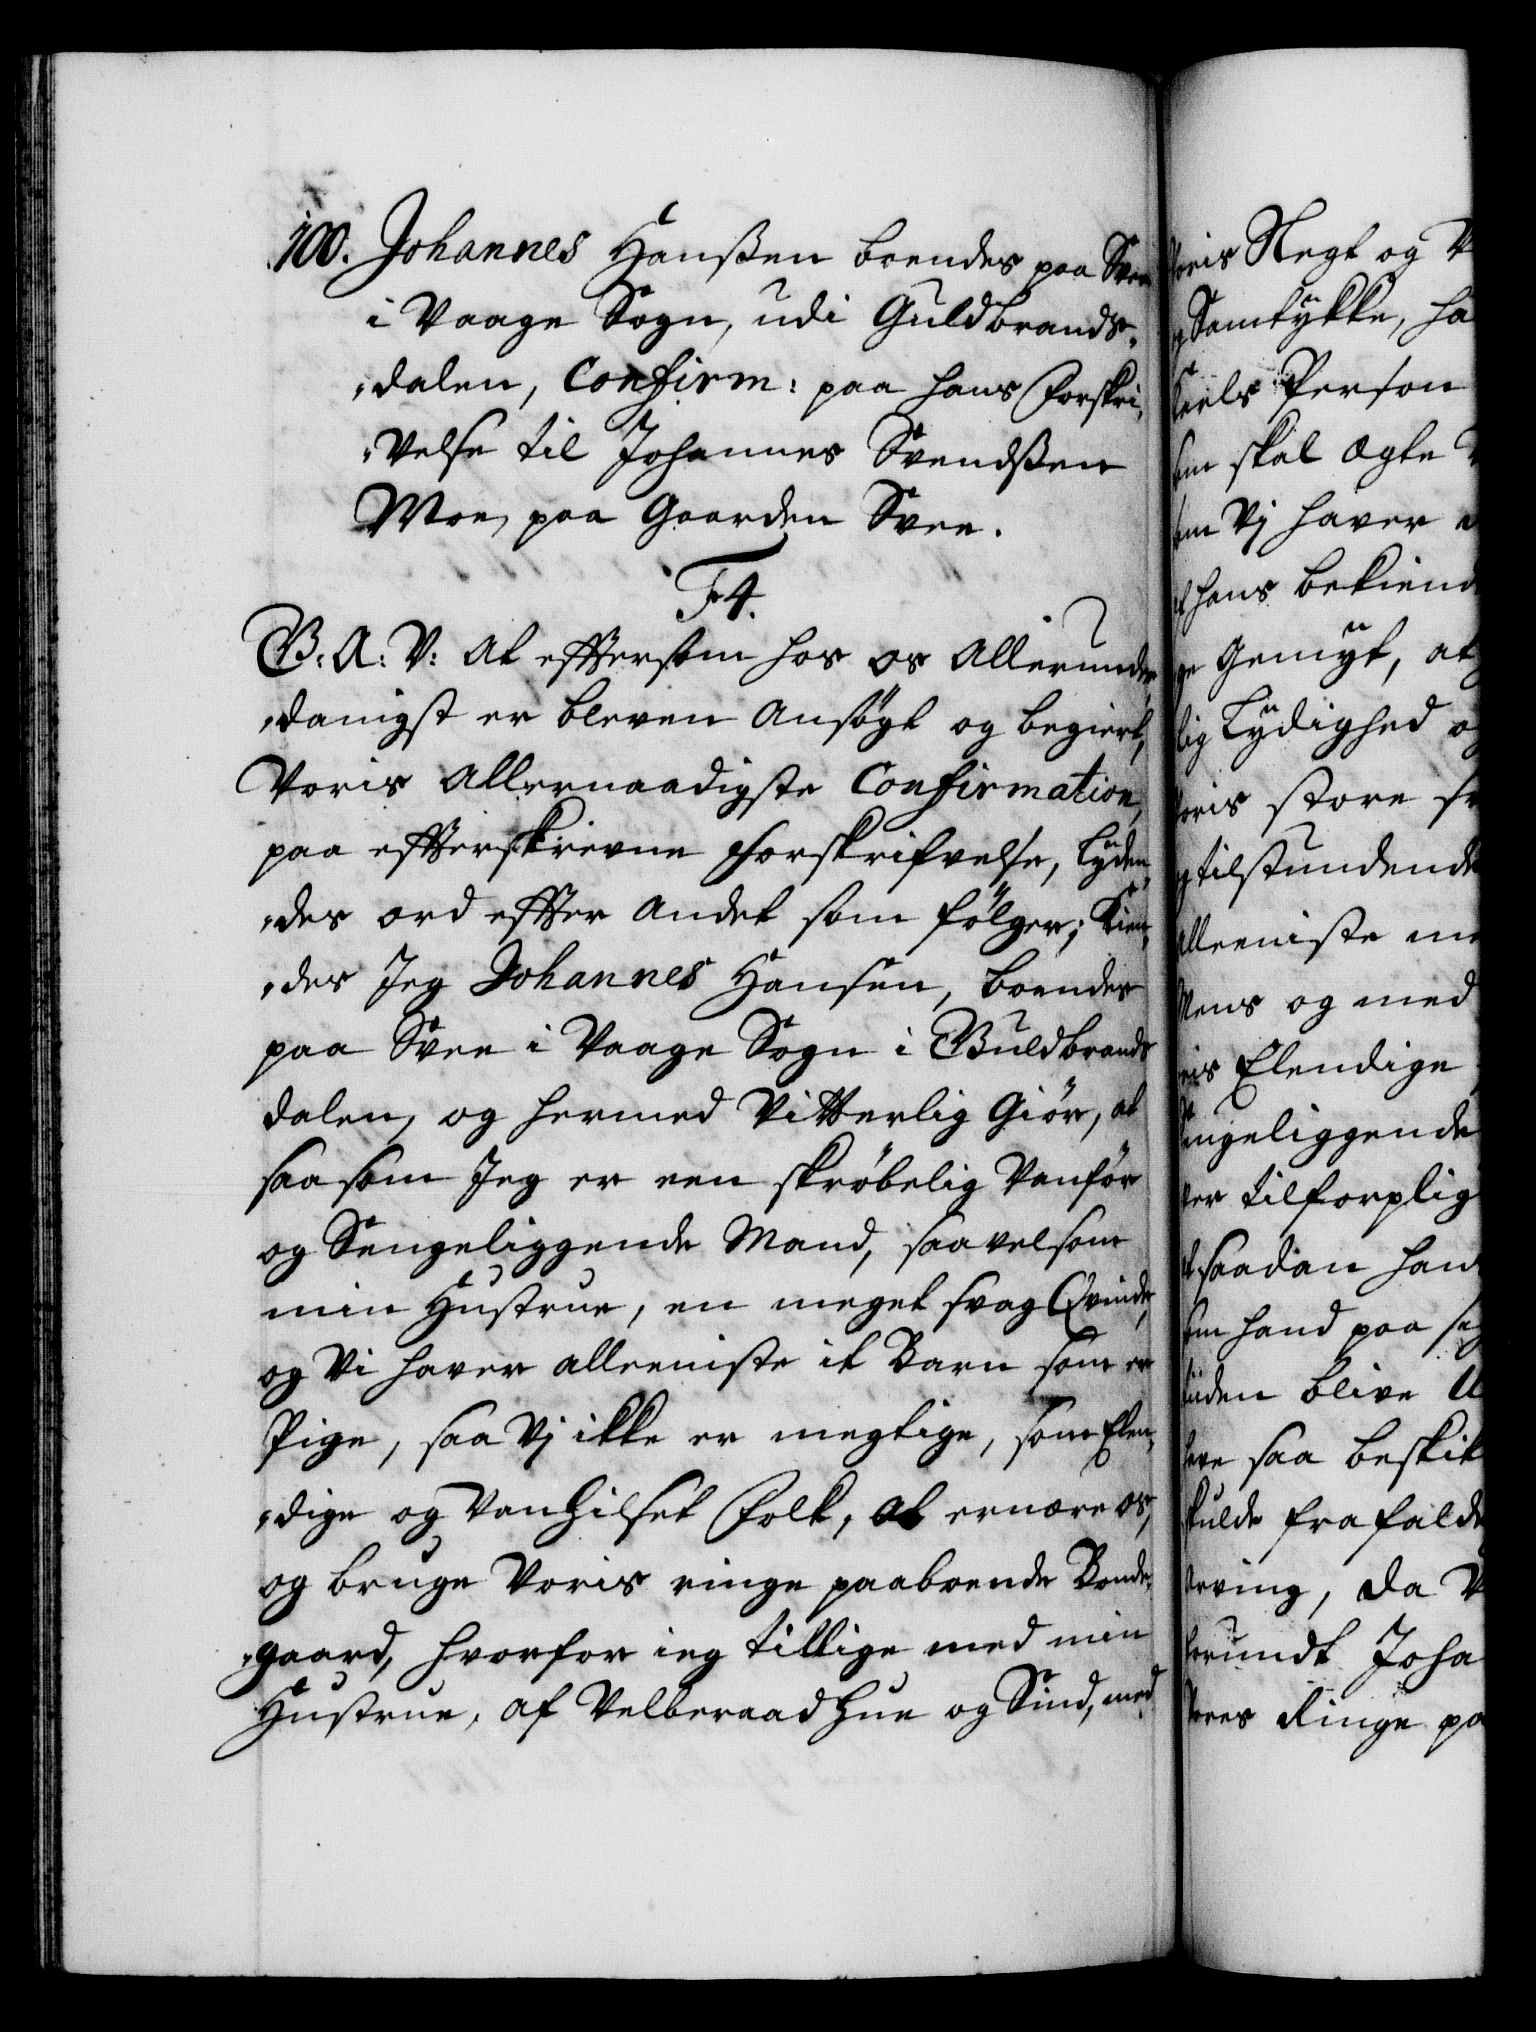 100. Johannes Hanßen boendes paa Svee
i Vaage Sogn, udi Guldbrands„
„dalen, Confirm: paa hans Forskri„
„velse til Johannes Svendßen
Moe, paa Gaarden Svee.
F4.
G: A: V: At effterson hos os Allerunder„
„danigst er bleven Ansögt og begiert,
Voris Allernaadigste Confirmation,
paa effterskrevne forskrifvelse, Lyden„
„des ord effter Andet som fölger; Kien„
„des Jeg Johannes Hansen, boendes
paa Svee i Vaage Sogn i Guldbrands
dalen, og hermed Vitterlig Giör, at
saasom Jeg er een skröbelig Vanför
og Sengeliggende Mand, saavelsom
min Hustrue, en meget svag Qvinde,
og Vi haver alleeniste it Barn som er
Pige, saa Vj ikke er megtige, som Elen„
„dige og Vanhilset Folk, at ernære os,
og bruge Voris ringe paaboende Bonde„
„gaard, hvorfor ieg tillige med min
Hustrue, af Velberaad Hue og Sind, med
Voris Slegt og V
og Samtykke, ha
Person
som skal Ægte
som Vj haver
hans bekiend
ge Gemyt, at
lig Lydighed og
Voris store
og tilstundende
Alleeniste me
og med
Voris Elendige
Sengeliggende
tilforplig
saadan hand
som hand paa
tiiden blive
saa beskik
skulde frafalde
da V
Joha
Vores Ringe pa